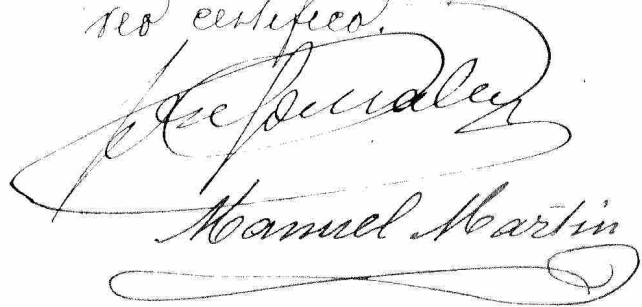 certifico.
José González
Manuel Martin